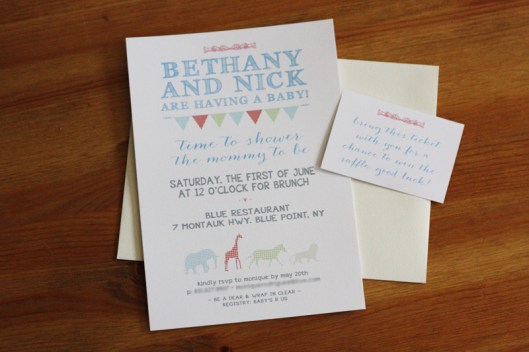 BETHANY
AND NICK
ARE HAVING A BABY!
Time to shower
the mommy to be
SATURDAY, THE FIRST OF JUNE
AT 12 O'CLOCK FOR BRUNCH
BLUE RESTAURANT
7 MONTAUK HWY. BLUE POINT, NY
kindly rsvp to monique by may 20th
p:
- BE A DEAR & WRAP IN CLEAR -
REGISTRY: BABY'S R US
bring this ticket
with you for a
chance to win the
raffle. good luck!